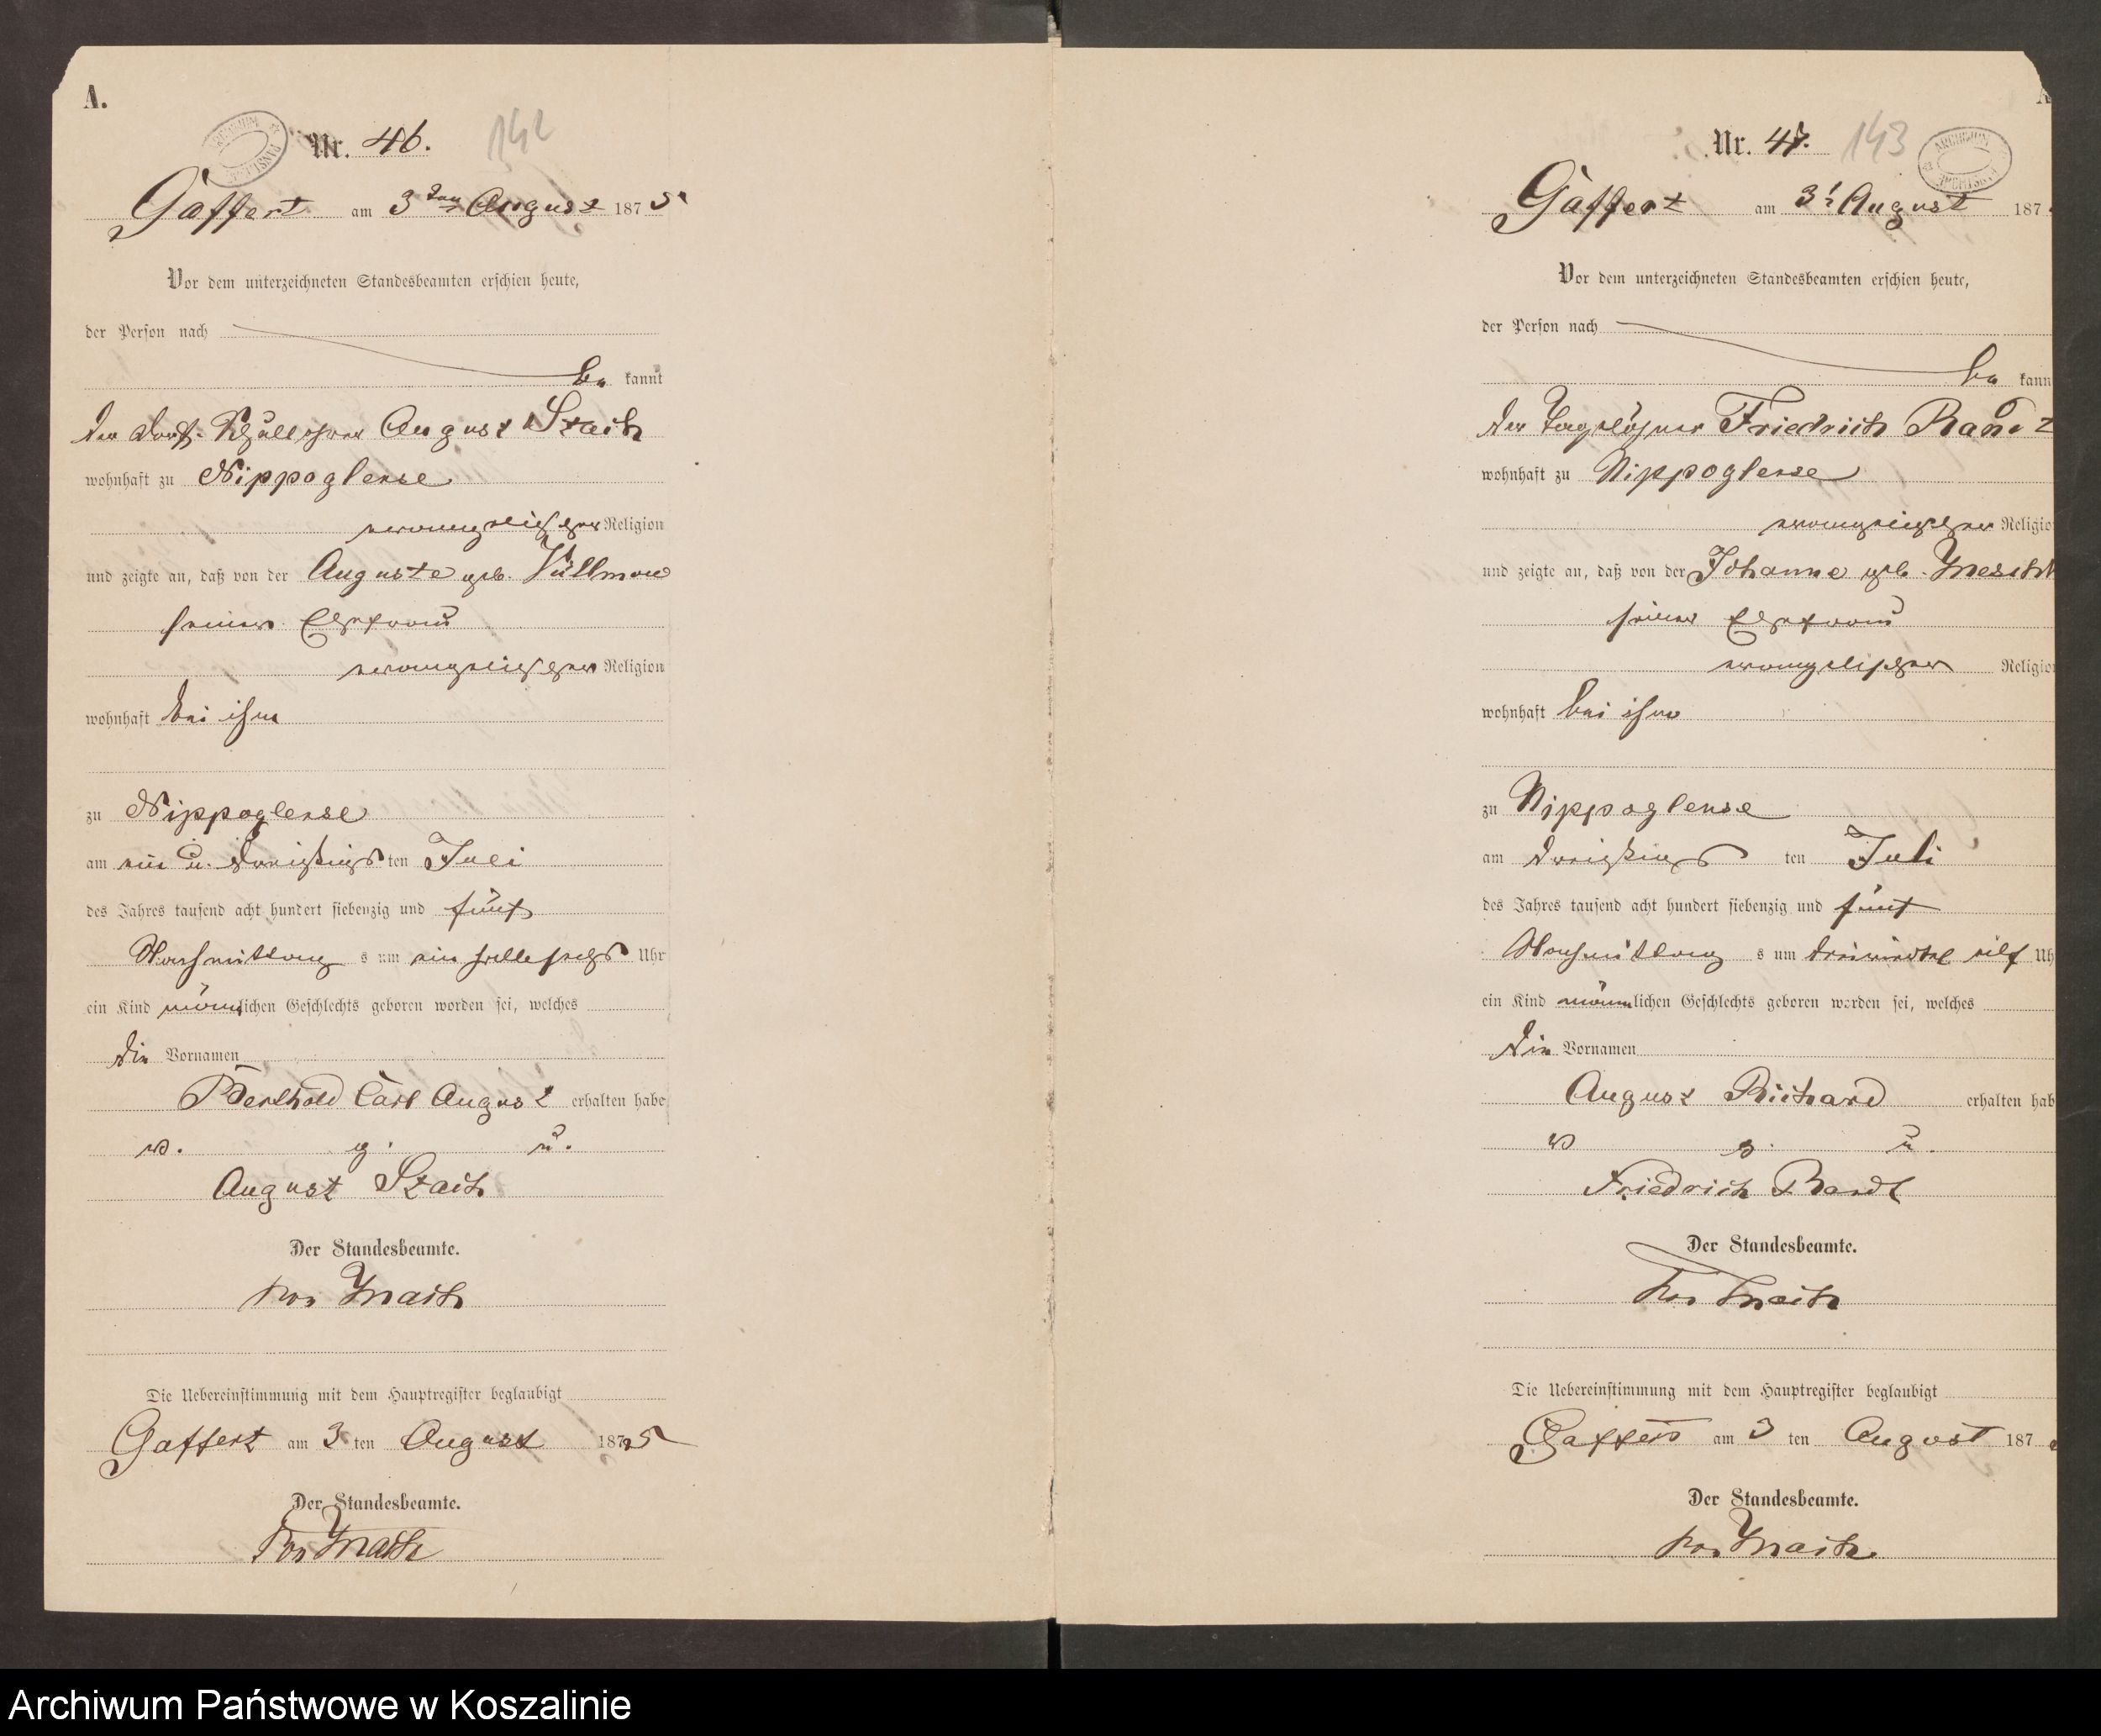 A.
Nr. 46.
142
Gaffert am 3ten August 1875
Vor dem unterzeichneten Standesbeamten erschien heute,
der Person nach
be kannt
der Dorf-Schullehrer August Strach
wohnhaft zu Nippoglense
evangelischer Religion
und zeigte an, daß von der Auguste geb.
seiner Ehefrau
evangelischer Religion
wohnhaft bei ihm
zu Nippoglense
am ein u. dreißigs ten Juli
des Jahres tausend acht hundert siebenzig und fünf
Nachmittag s um ein halb sechs Uhr
ein Kind männlichen Geschlechts geboren worden sei, welches
die Vornamen
Berthold Carl August erhalten habe
v. g. u.
August Strach
Der Standesbeamte.
Die Uebereinstimmung mit dem Hauptregister beglaubigt
Gaffert am 3 ten August 1875
Der Standesbeamte.
Nr. 47.
143
Gaffert am 3t August 187
Vor dem unterzeichneten Standesbeamten erschien heute,
der Person nach
be kann
der Tagelöhner Friedrich Bandt
wohnhaft zu Nippoglense
evangelischer Religio
und zeigte an, daß von der Johanne geb.
seiner Ehefrau
evangelischer Religio
wohnhaft bei ihm
zu Nippoglense
am dreißigs ten Juli
des Jahres tausend acht hundert siebenzig und fünf
Nachmittag s um dreiviertel elf Uh
ein Kind männlichen Geschlechts geboren worden sei, welches
die Vornamen
August Richard erhalten hab
v g. u.
Friedrich Bandt
Der Standesbeamte.
Die Uebereinstimmung mit dem Hauptregister beglaubigt
Gaffert am 3 ten August 187
Der Standesbeamte.
Archiwum Państwowe w Koszalinie